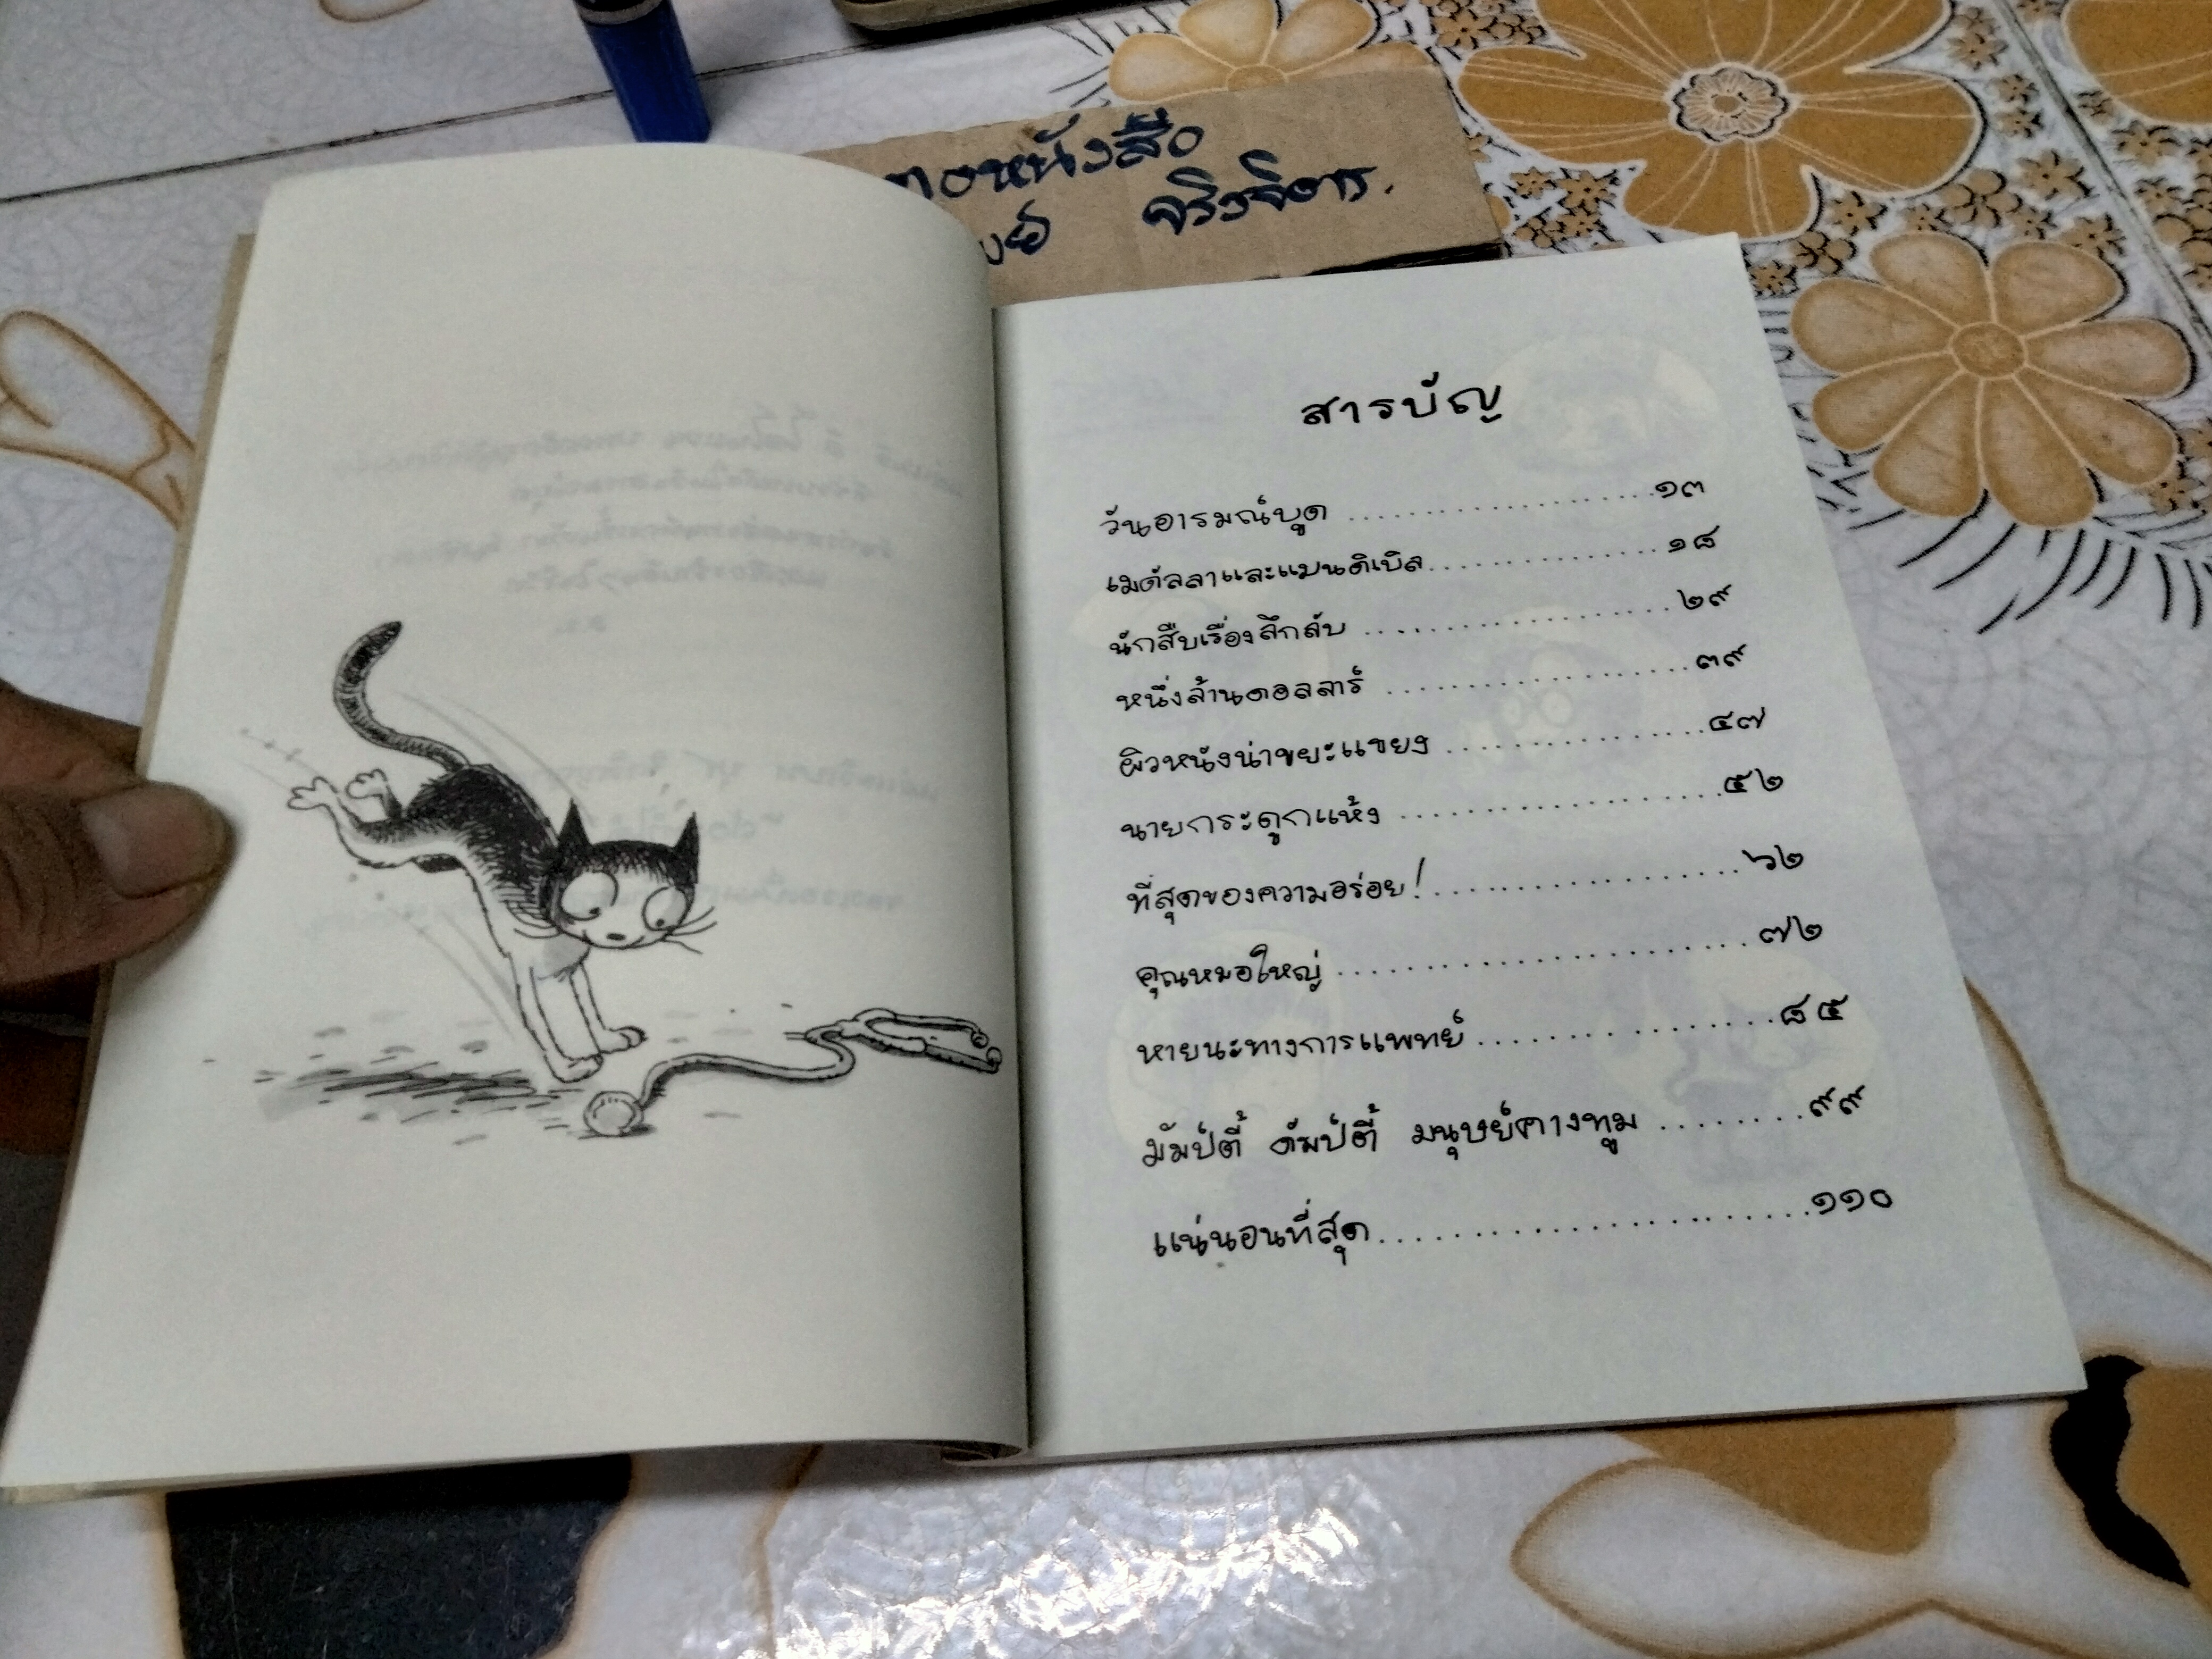 หนังสือ
จริงจิตร.
สารบัญ
วันอารมณ์บูด ......................๑๓
เมดัลลาและแมนดิเบิล...............๑๘
นักสืบเรื่องลึกลับ ....................๒๙
หนึ่งล้านดอลลาร์ ....................๓๙
ผิวหนังน่าขยะแขยง .................๔๗
นายกระดูกแห้ง .....................๕๒
ที่สุดของความอร่อย!..................๖๒
คุณหมอใหญ่ .........................๗๒
หายนะทางการแพทย์ ................๘๕
มัมป์ตี้ ดัมป์ตี้ มนุษย์คางทูม .........๙๙
แน่นอนที่สุด.........................๑๑๐